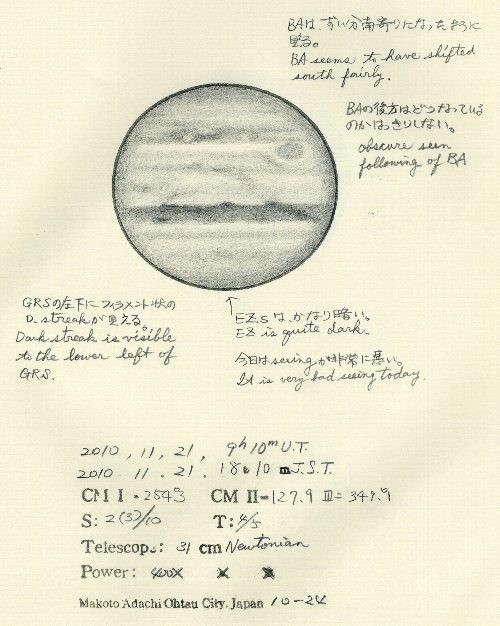 BAは、ずい分南寄りになったように
見える。
BA seems to have shifted
south fairly.
BAの後方はどうなっている
のかはっきりしない。
obscure seen
following of BA
GRSの左下にフィラメント状の
D. streakが見える
Dark streak is visible
to the lower left of
GRS.
EZsは、かなり暗い。
EZ is quite dark.
今日はseeingが非常に悪い。
It is very bad seeing today.
2010, 11, 21, 9h 10m U.T.
2010. 11. 21. 18h 10 m J.S.T.
CM I = 254.3 CM II = 127.9 III = 349.9
S: 2(3)/10 T: 4/5
Telescope: 31 cm Newtonian
Power: 400X X X
Makoto Adachi Ohtsu City, Japan 10-24